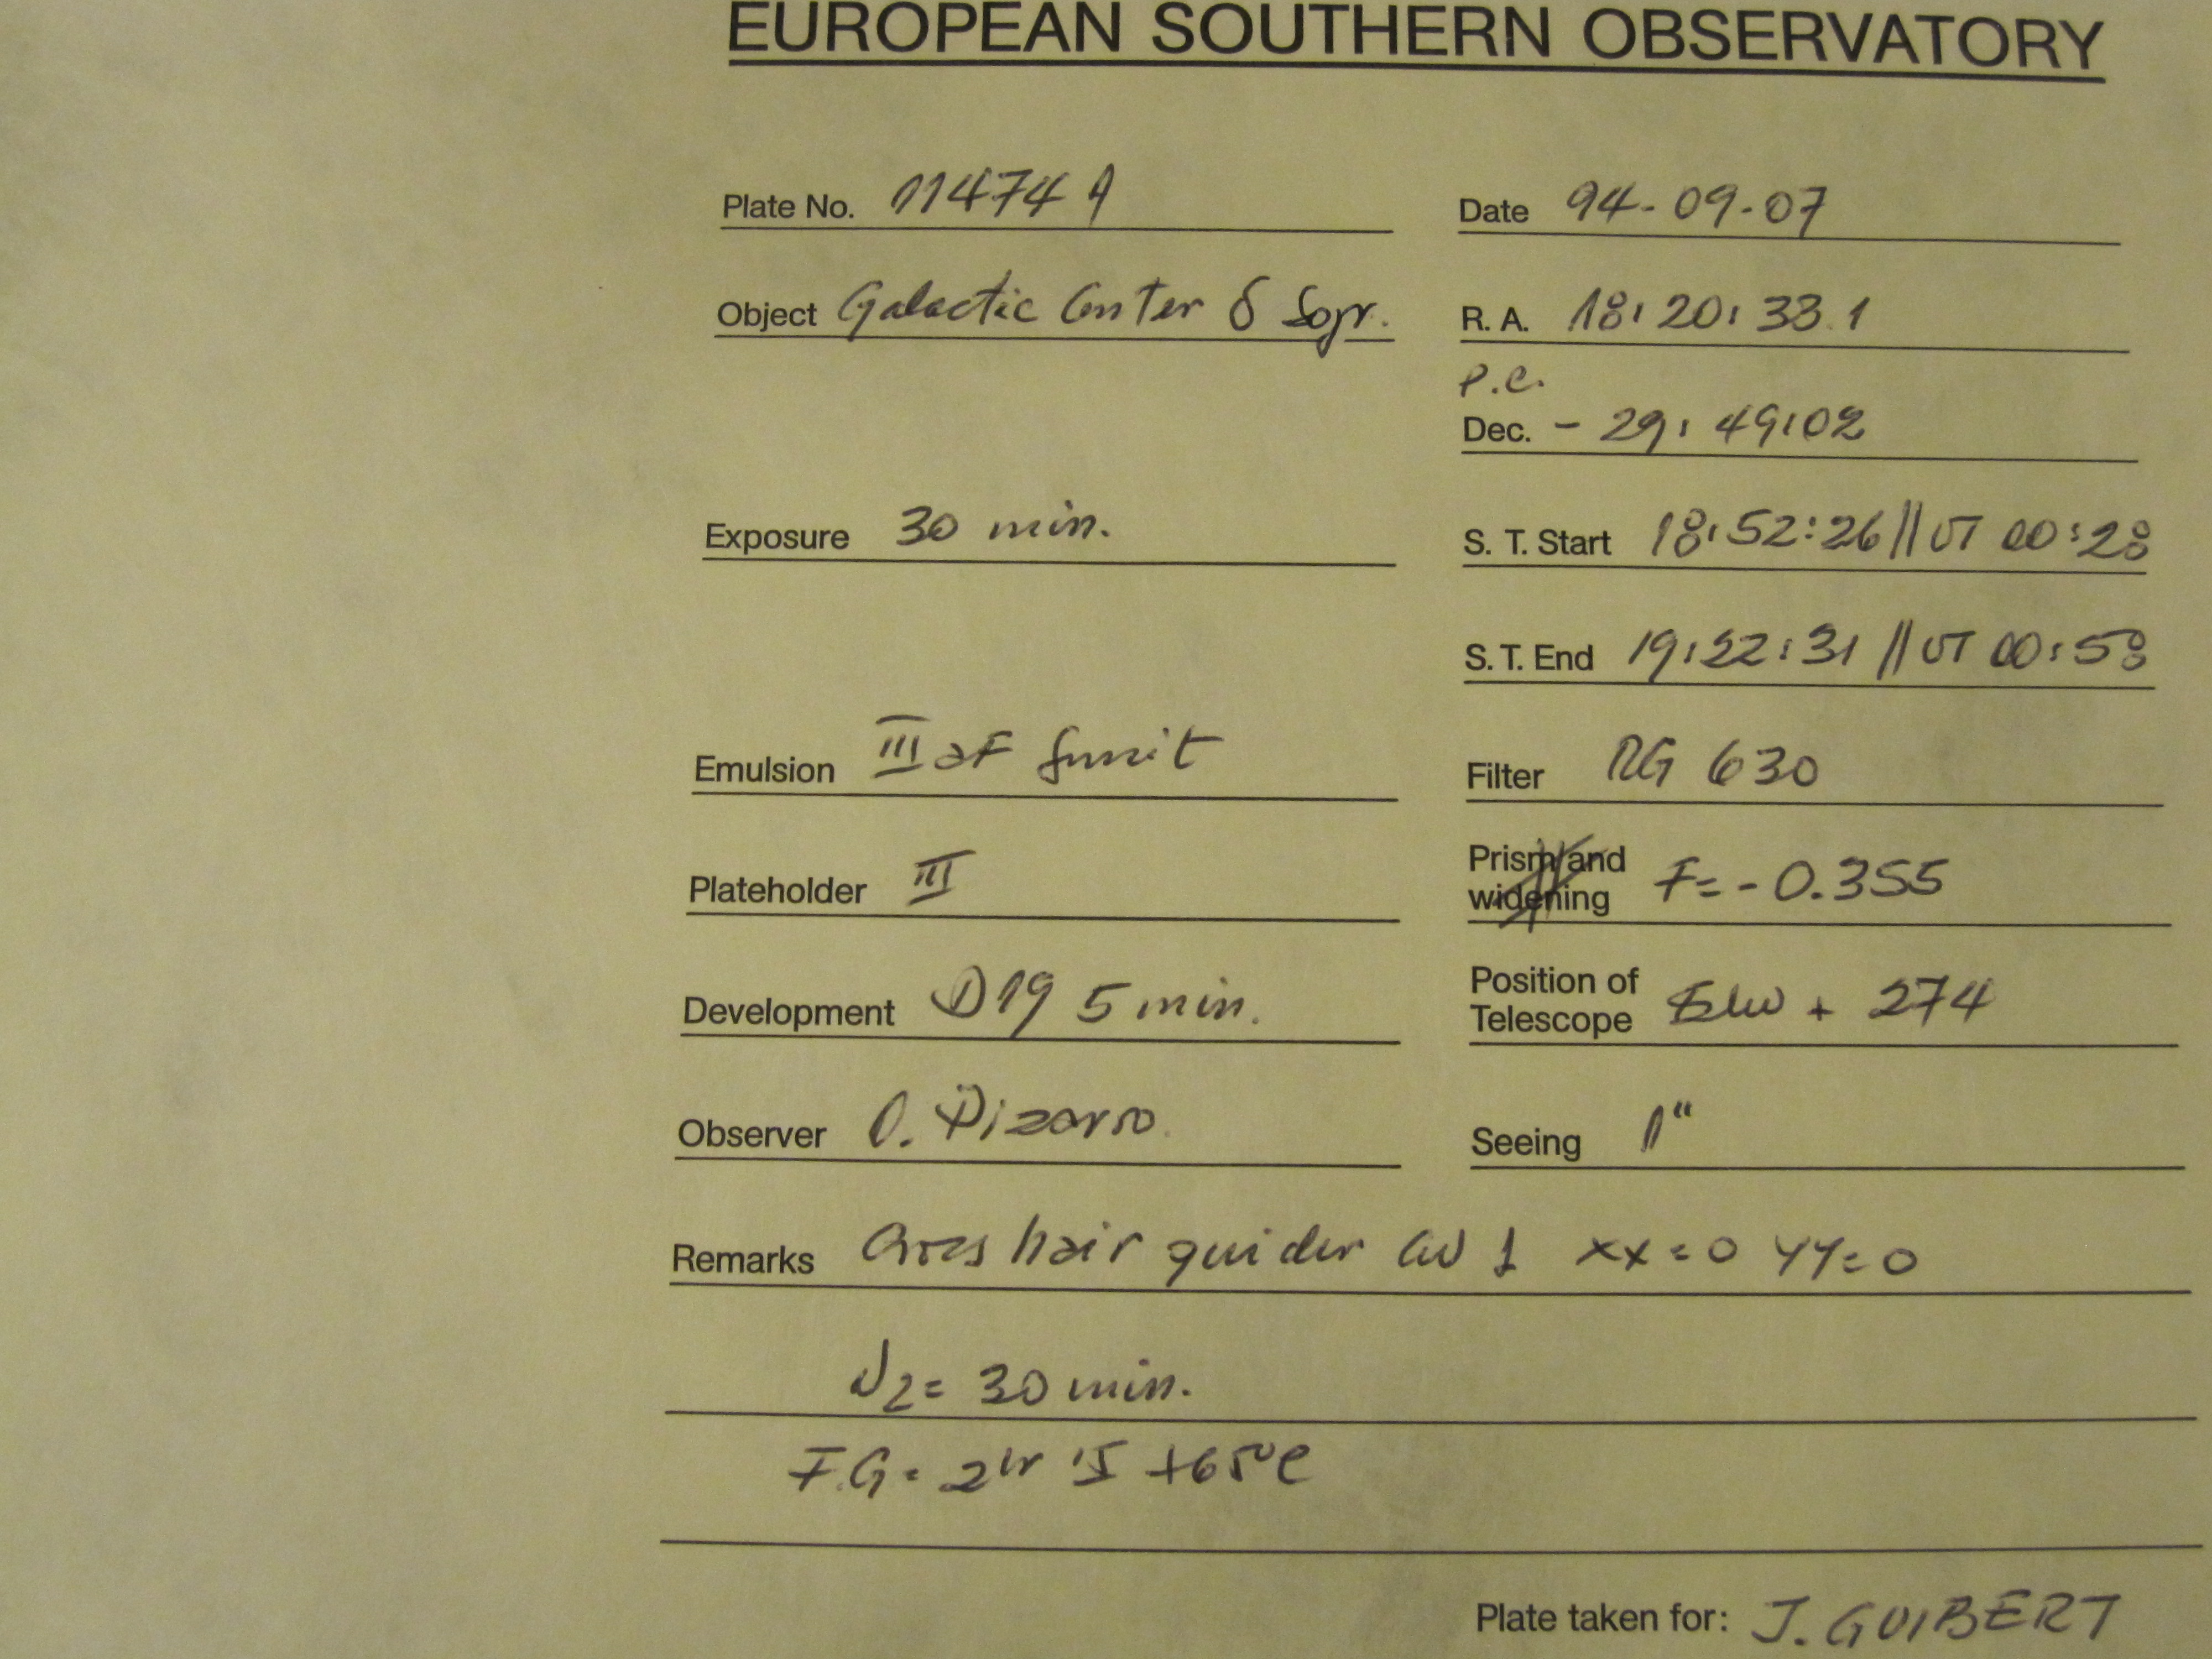 EUROPEAN SOUTHERN OBSERVATORY
Plate No. 11474 A
Date 94-09-07
Object Galactic Center δ
R. A. 18:20:33.1
P.C.
Dec. - 29:49:02
Exposure 30 min.
S. T. Start 18:52:26 || UT 00:28
S. T. End 19:22:31 || UT 00:58
Emulsion III aF
Filter RG 630
Plateholder III
Prism and widening F= - 0.355
Development D19 5 min.
Position of Telescope + 274
Observer O. Pizarro
Seeing 1"
Remarks Cross hair guider xx=0 YY=0
N2= 30 min.
F.G= 2hr +65°C
Plate taken for: J. GUIBERT